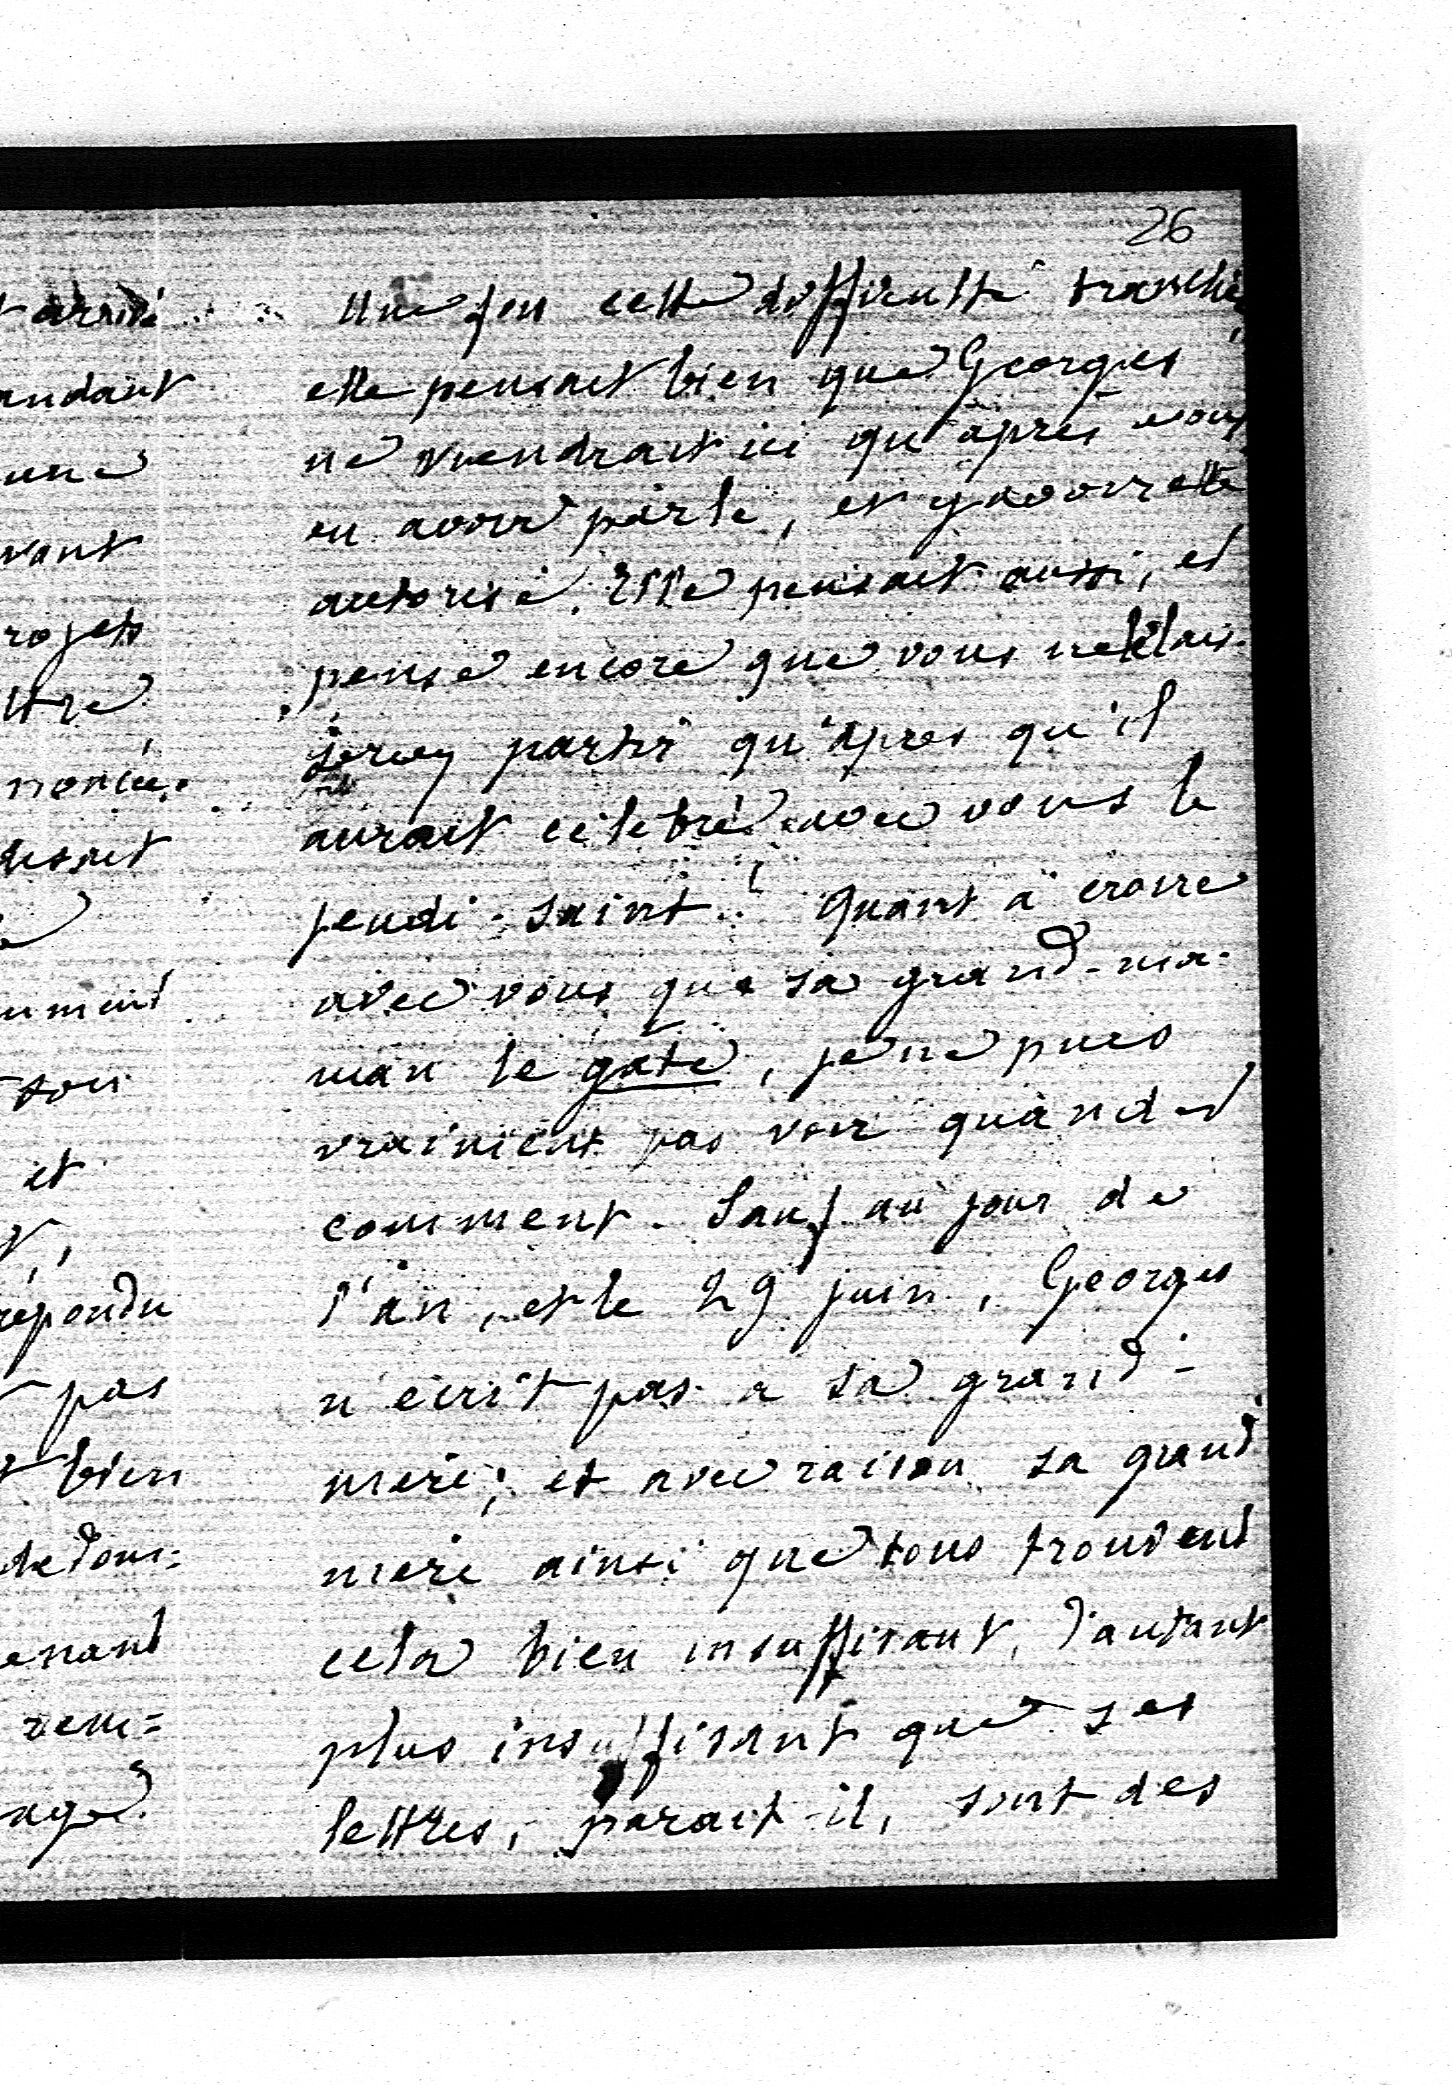 26
arrivé
andant
une
vant
rojets
ttre
noncée.
disait
mment
son
et
répondu
pas
bien
de vous=
enant
rem=
age.
Une fois cette difficulté tranchée,
elle pensait bien que Georges
ne viendrait ici qu'après vous
en avoir parlé, et y avoir été
autorisé. Elle pensait aussi, et
pense encore que vous ne le lais-
seriez partir qu'après qu'il
aurait célébré avec vous le
jeudi-saint. Quant à croire
avec vous que sa grand-ma-
man le gâte, je ne puis
vraiment pas voir quand et
comment. Sauf au jour de
l'an, et le 29 juin, Georges
n'écrit pas à sa grand-
mère; et avec raison sa grand
mère ainsi que tous trouvent
cela bien insuffisant, d'autant
plus insuffisant que ses
lettres, parait-il, sont des